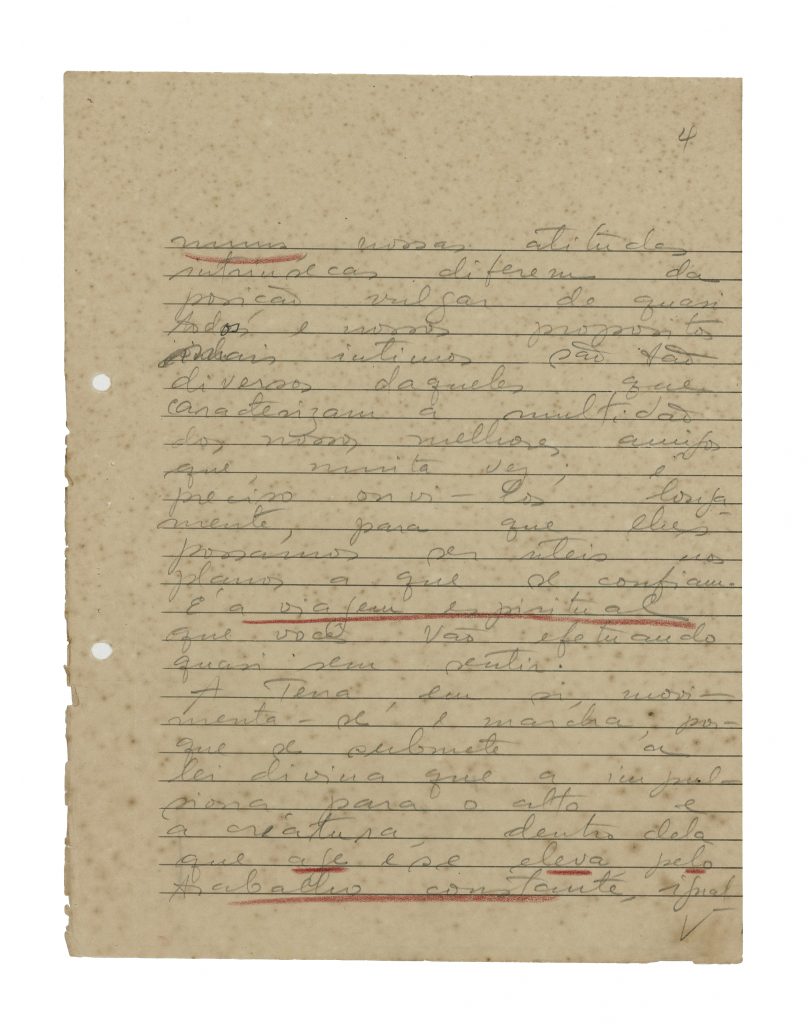 4
nossas atitudes
intrinsecas diferem da
posição vulgar de quasi
todos, e nossos propositos
mais intimos são tão
diversos daqueles que
caracterizam a multidão
dos nossos melhores amigos
que, muita vez, é
preciso ouvi-los longa
mente, para que lhes
possamos ser uteis nos
planos a que se confiam.
É a viagem espiritual
que vocês vão efetuando
quasi sem sentir.
A Terra, em si, movi-
menta-se e marcha, por-
que se submete á
lei divina que a impul-
siona para o alto e
a creatura, dentro dela
que age e se eleva pelo
trabalho constante, igual